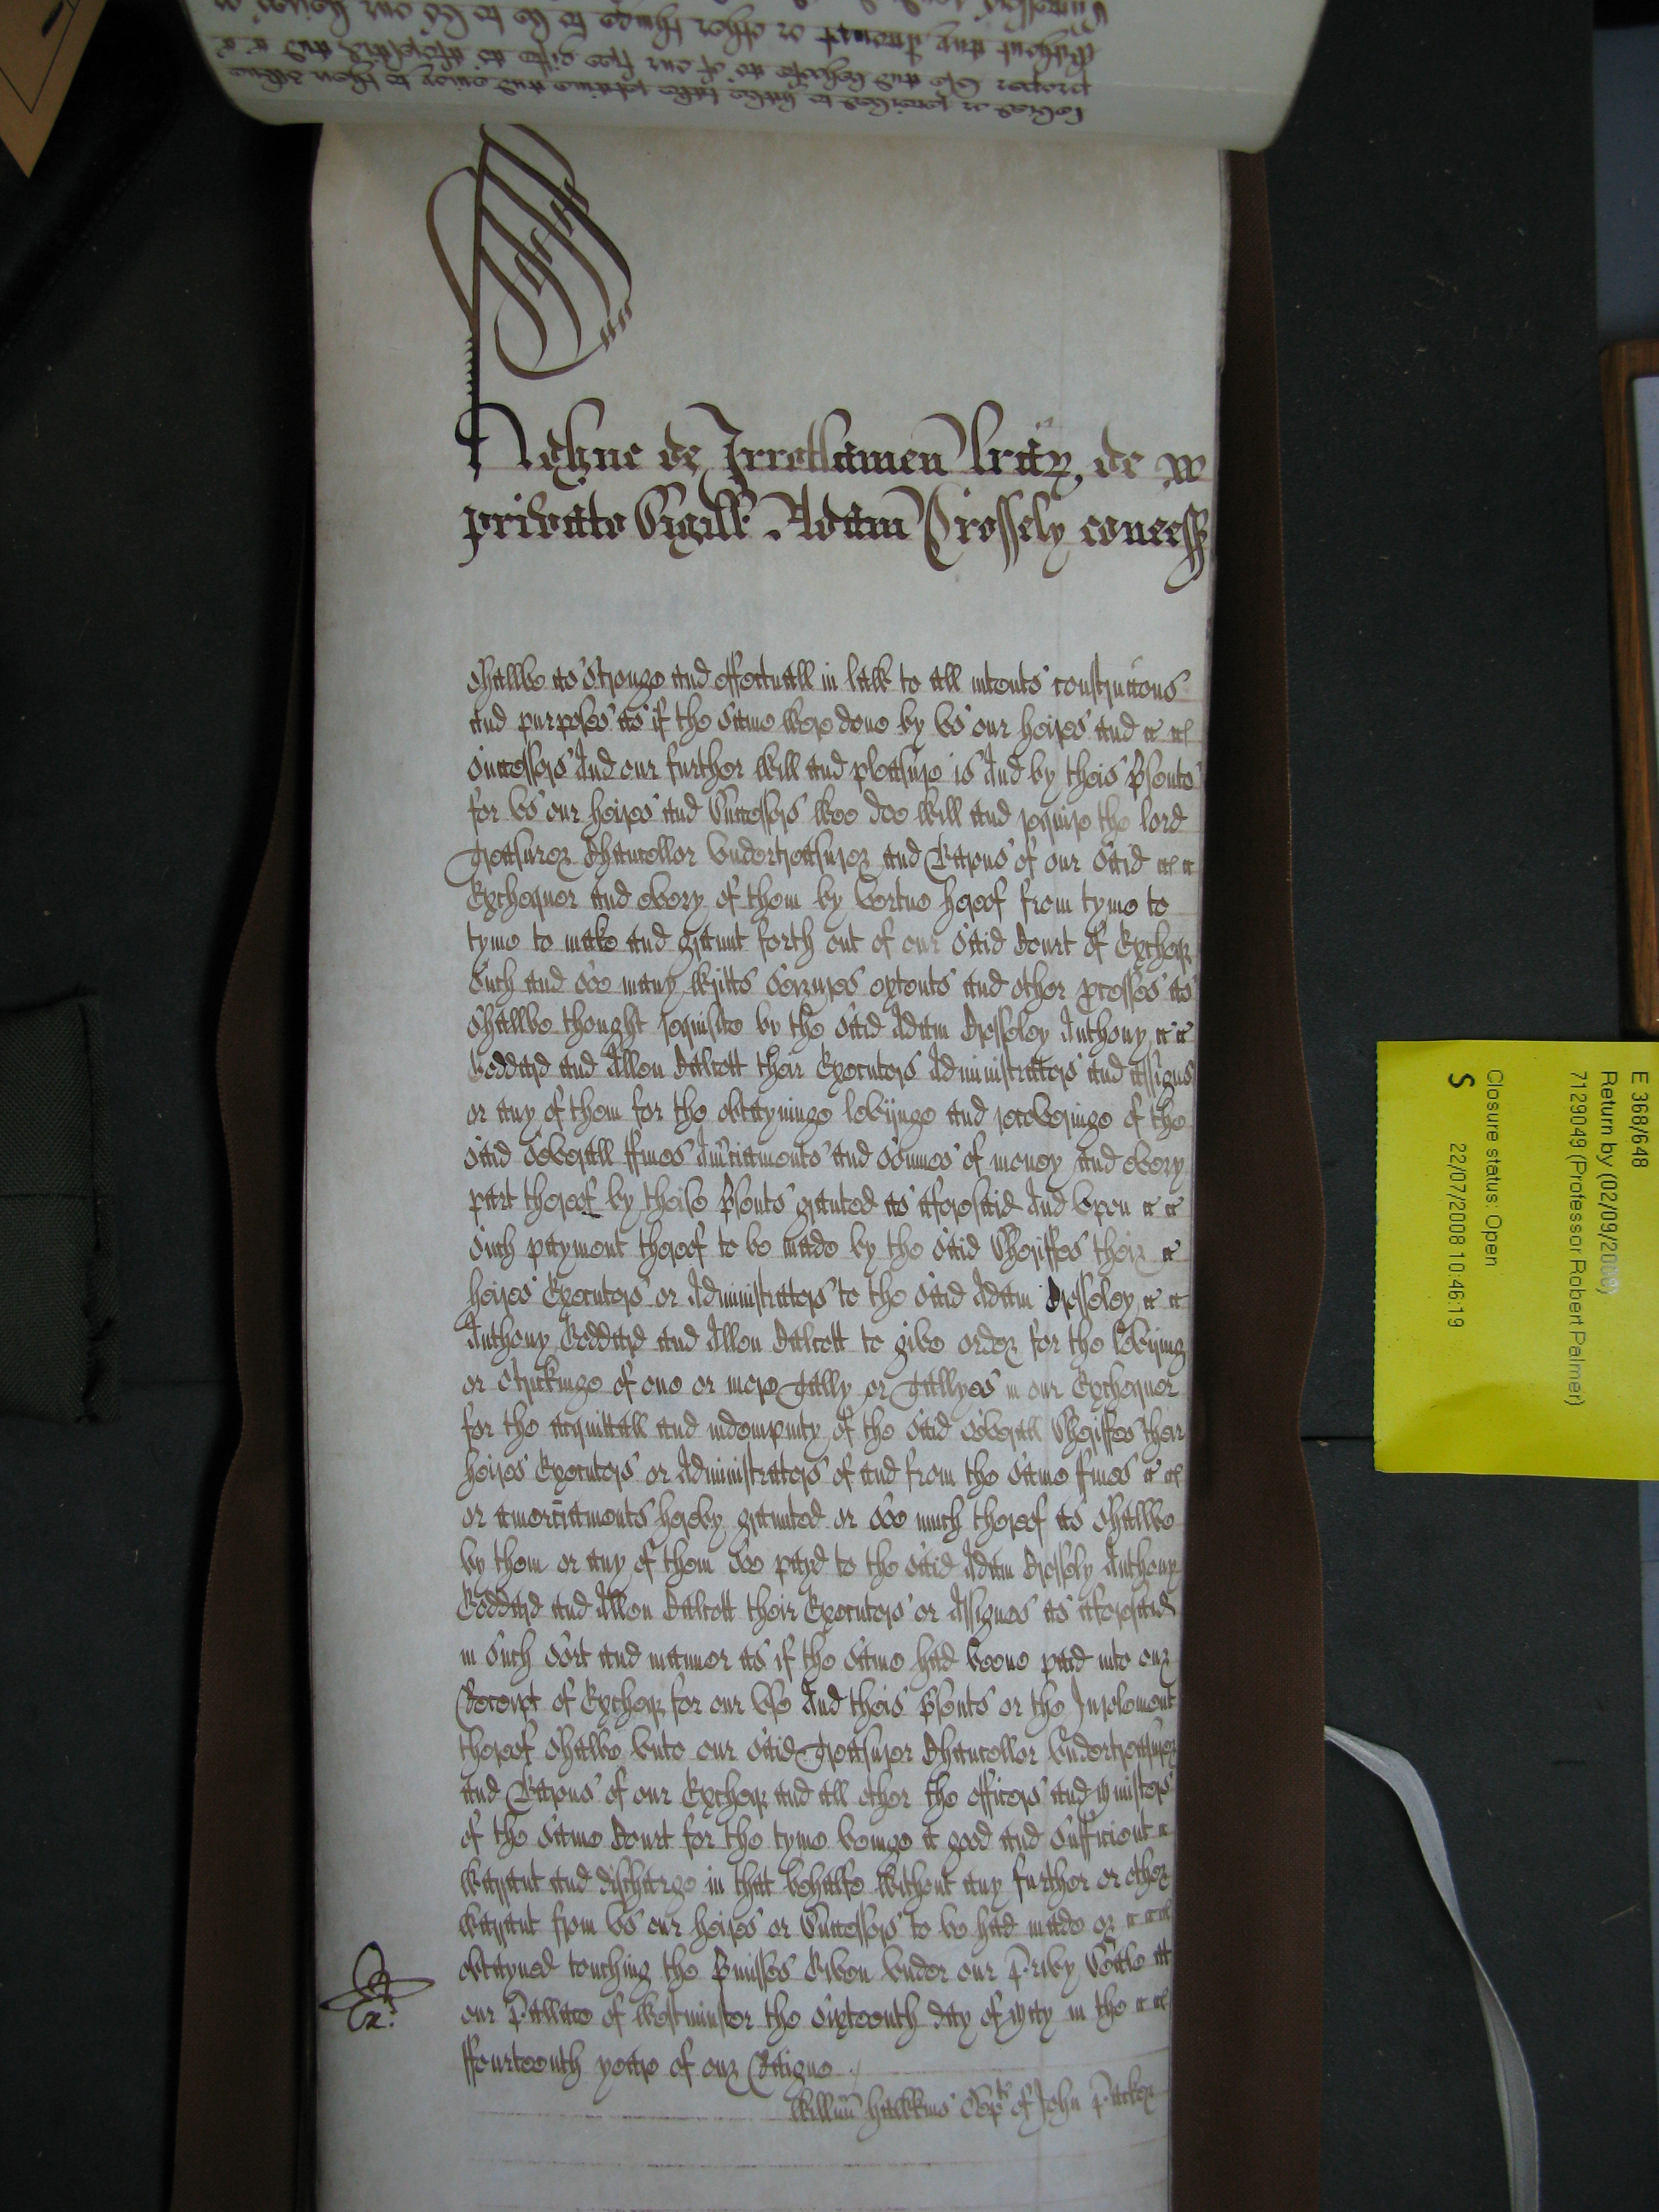 Adhuc de Irrotlamen lrar, de
privato Sigillo Adam Crossely concess
shallbe as stronge and effectuall in lawe to all intents construccons
and purposes as if the same were done by vs our heires and
Successors And our further will and pleasure is And by theis psents
for vs our heires and Successors wee doe will and require the lord
Treasurer Chauncellor vndertreasurer and Barons of our said
Exchequer and every of them by vertue hereof from tyme to
tyme to make and graunt forth out of our said Court of Excheqr
Such and soe many writts seizures extents and other processe as
Shallbe thought requisite by the said Adam Crosseley Anthony
Goddard and Allen Calcott their Executors Administrators and assignes
or any of them for the obtayninge levyinge and recoveringe of the
said severall ffines Amciaments and Sommes of money and every
part thereof by theise psents graunted as aforesaid And vpon
Such payment thereof to be made by the said Sheriffes their
heires Executors or Administrators to the said Adam Crosseley
Anthony Goddard and Allen Calcott to give order for the levying
or strickinge of one or more Tally or Tallyes in our Exchequer
for the acquittall and indempnity of the said severall Sheriffes their
heires Executors or Administrators of and from the same fines
or amerciaments hereby graunted or soe much thereof as shallbe
by them or any of them soe payd to the said Adam Crossely Anthony
Goddard and Allen Calcott their Executors or Assignes as aforesaid
in such sort and manner as if the same had beene paid into our
Receipt of Excheqr for our vse And theis psents or the Inrolement
thereof shallbe vnto our said Treasurer Chauncellor vndertreasurer
and Barons of our Excheqr and all other the officers and Ministers
of the same Court for the tyme beinge a good and sufficient
warrant and discharge in that behalfe without any further or other
warrant from vs our heires or Successors to be had made or
obtayned touching the Pmisses Given vnder our Privy Seale at
our Pallace of Westminster the sixteenth day of May in the
ffourteenth yeare of our Raigne
Willm Hawkins Dep of John Packer
Ex:
E 368/648
Return by (02/09/2008)
7129049 (Professor Robert Palmer)
Closure status: Open
S 22/07/2008 10:46:19